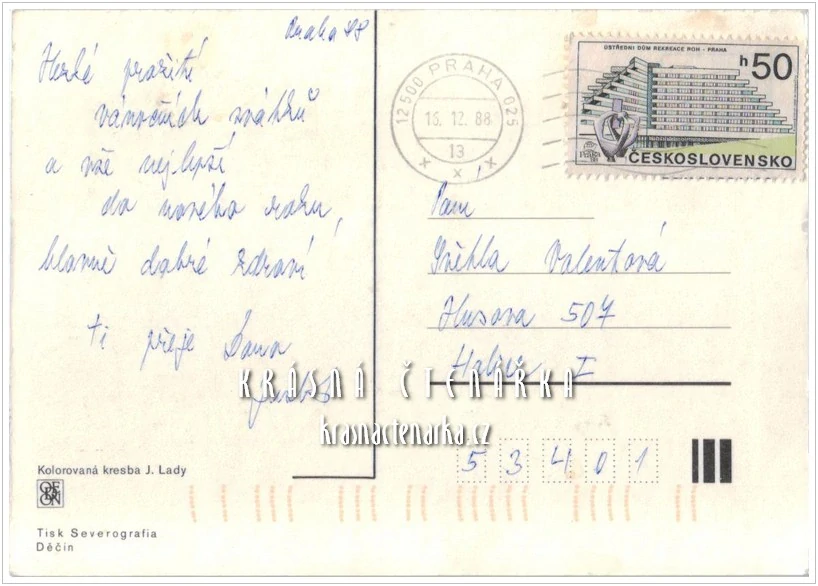 Praha 88
Hezké prožití
vánočních svátků
a vše nejlepší
do nového roku,
hlavně dobré zdraví
ti přeje Dana
Kolorovaná kresba J. Lady
ORBIS
Tisk Severografia
Děčín
12500 PRAHA 025
16.12.88
13
x x x
ÚSTŘEDNÍ DŮM REKREACE ROH - PRAHA
h50
ČESKOSLOVENSKO
Paní
Valentová
Husova 507
Holice I
53401
KRÁSNÁ ČTENÁŘKA
krasnactenarka.cz